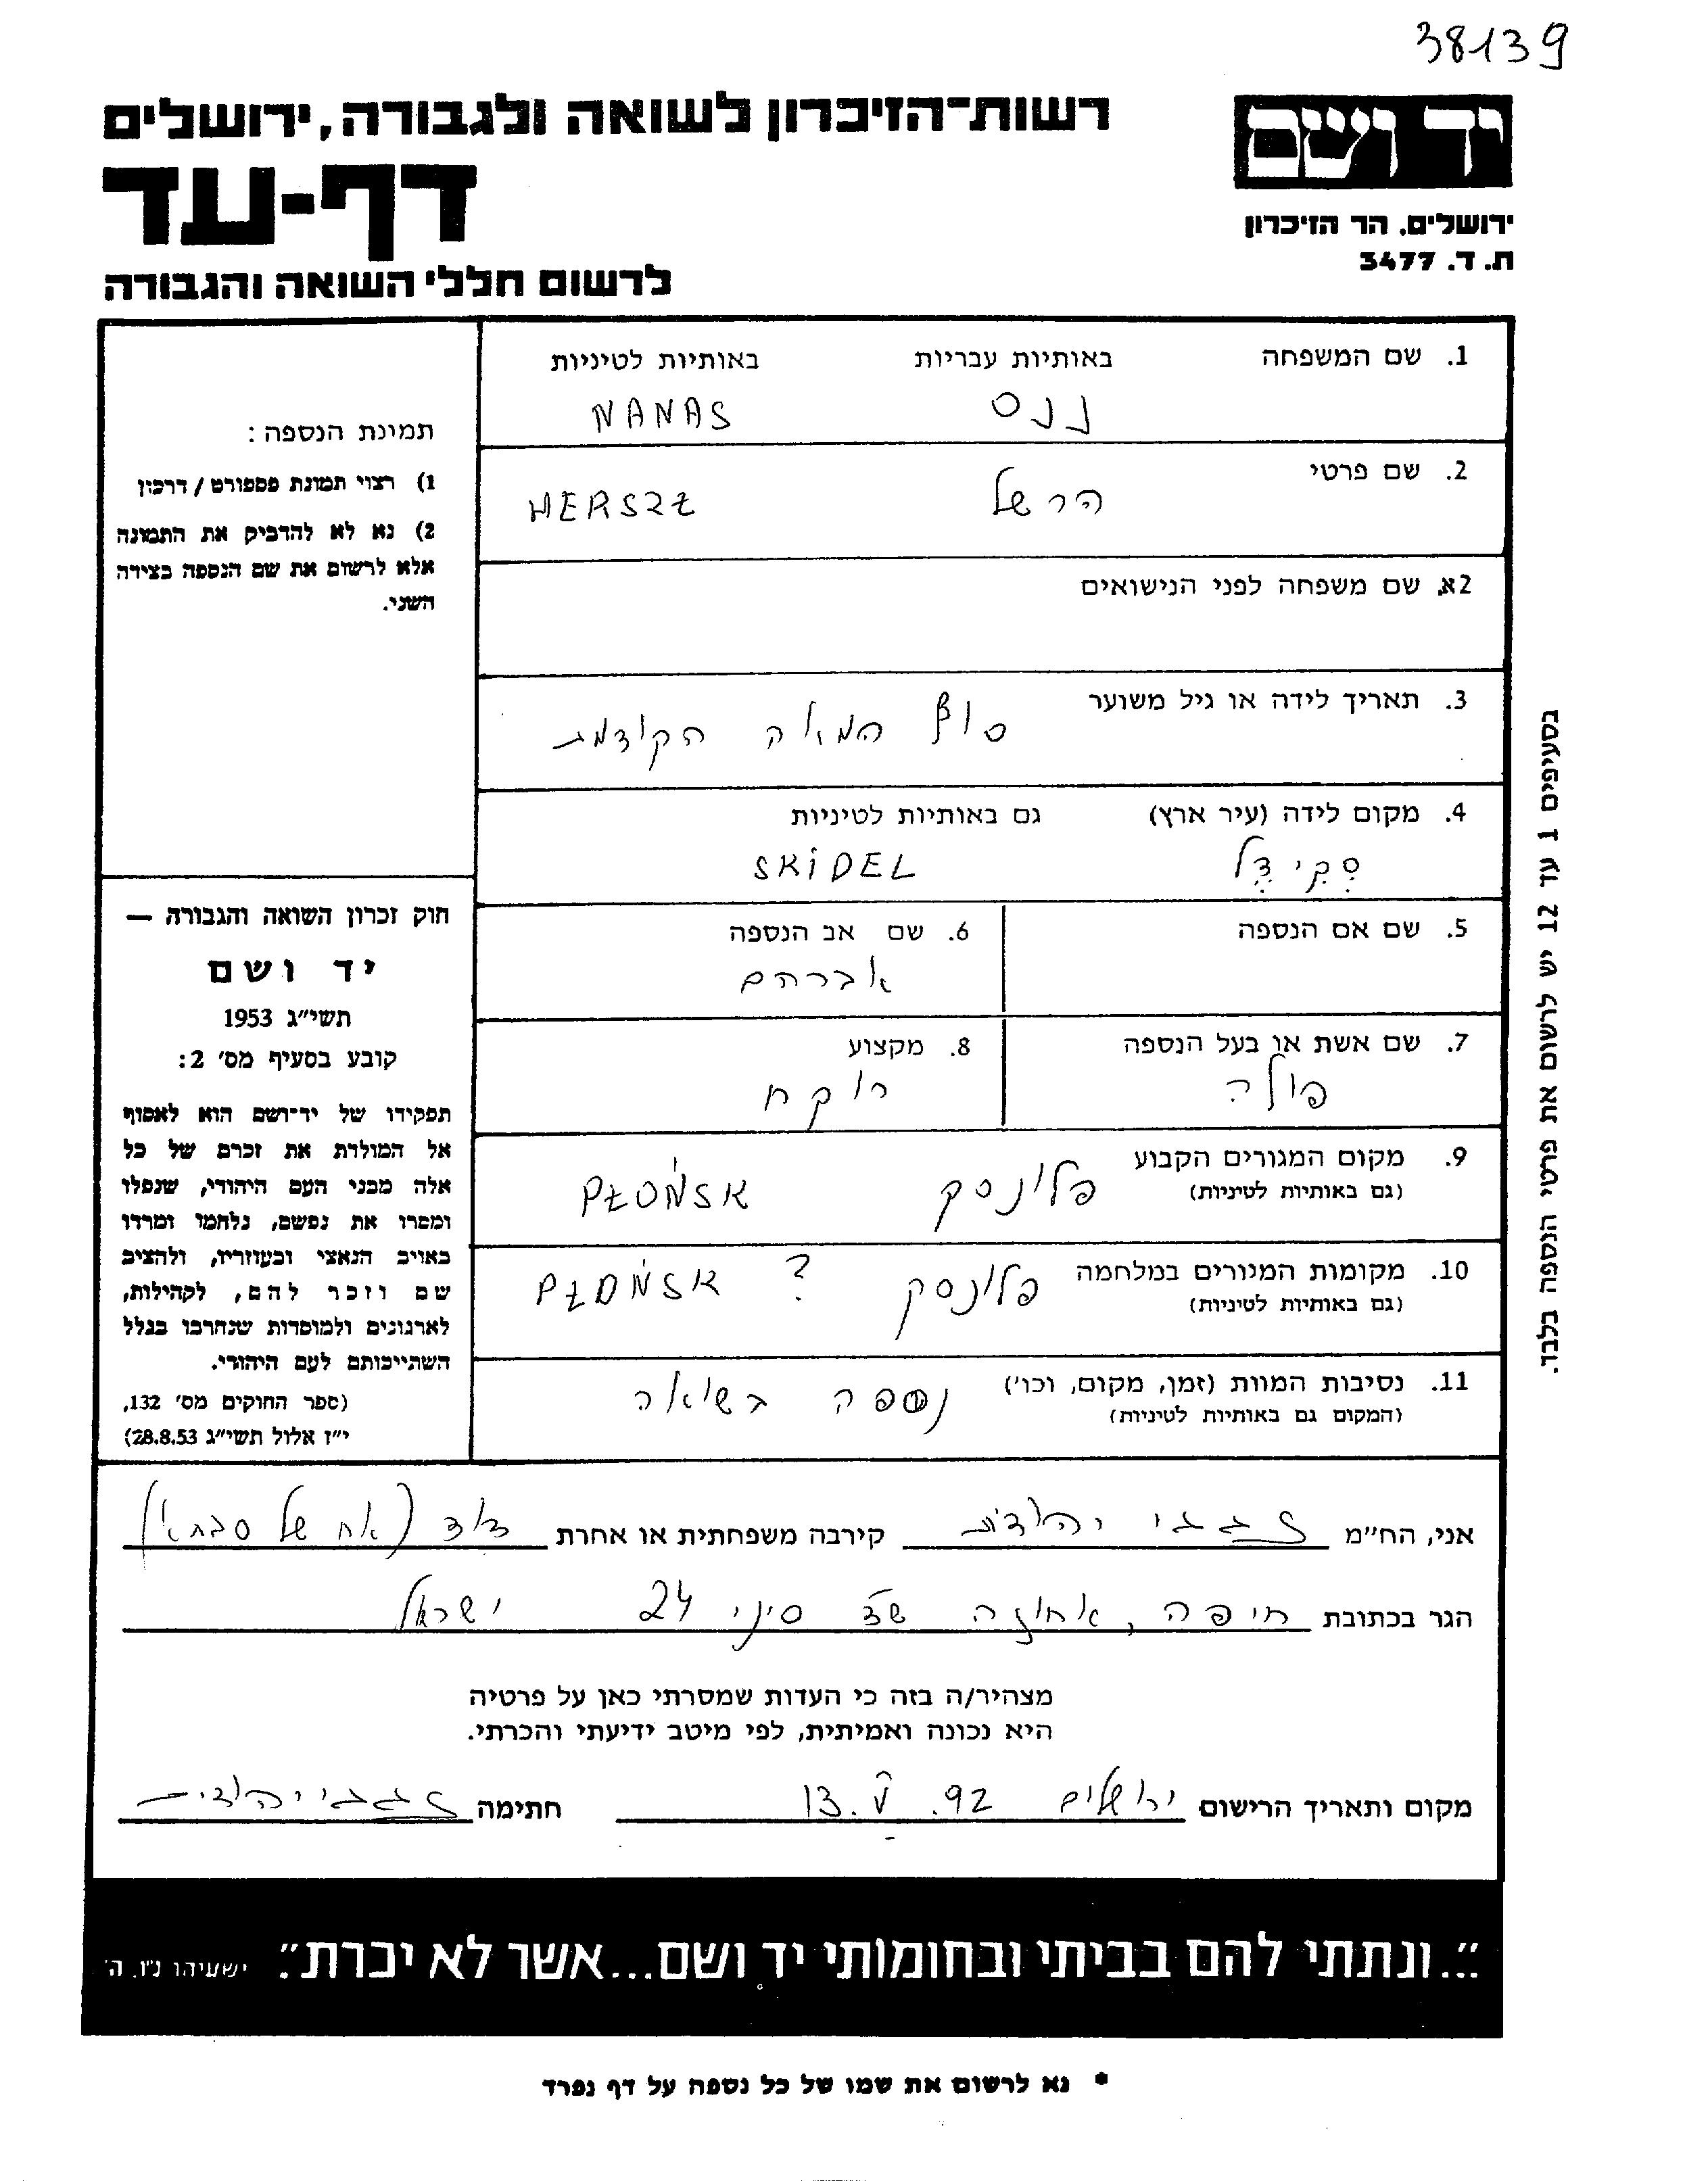 38139
יד ושם
רשות־הזיכרון לשואה ולגבורה, ירושלים
דף-עד
ירושלים, הר הזיכרון
ת. ד. 3477
לרשום חללי השואה והגבורה
1. שם המשפחה באותיות עבריות באותיות לטיניות
ננס NANAS
2. שם פרטי
הרשל HERSZŁ
2א. שם משפחה לפני הנישואים
3. תאריך לידה או גיל משוער
סוף המאה הקודמת
4. מקום לידה (עיר ארץ) גם באותיות לטיניות
סקידל SKIDEL
5. שם אם הנספה
6. שם אב הנספה
אברהם
7. שם אשת או בעל הנספה
פולה
8. מקצוע
רוקח
9. מקום המגורים הקבוע
(גם באותיות לטיניות)
פלונסק PŁOŃSK
10. מקומות המגורים במלחמה
(גם באותיות לטיניות)
פלונסק PŁOŃSK ?
11. נסיבות המוות (זמן, מקום, וכו')
(המקום גם באותיות לטיניות)
נספה בשואה
תמונת הנספה:
1) רצוי תמונת פספורט / דרכון
2) נא לא להדביק את התמונה
אלא לרשום את שם הנספה בצידה
השני.
חוק זכרון השואה והגבורה —
יד ושם
תשי"ג 1953
קובע בסעיף מס' 2:
תפקידו של יד־ושם הוא לאסוף
אל המולדת את זכרם של כל
אלה מבני העם היהודי, שנפלו
ומסרו את נפשם, נלחמו ומרדו
באויב הנאצי ובעוזריו, ולהציב
שם וזכר להם, לקהילות,
לארגונים ולמוסדות שנחרבו בגלל
השתייכותם לעם היהודי.
(ספר החוקים מס' 132,
י"ז אלול תשי"ג 28.8.53)
בסעיפים 1 עד 12 יש לרשום את פרטי הנספה בלבד.
אני, הח"מ יהודית קירבה משפחתית או אחרת דוד (אח של סבתא)
הגר בכתובת חיפה, אחוזה שד סיני 24 ישראל
מצהיר/ה בזה כי העדות שמסרתי כאן על פרטיה
היא נכונה ואמיתית, לפי מיטב ידיעתי והכרתי.
מקום ותאריך הרישום ירושלים 13. V. 92 חתימה יהודית
"...ונתתי להם בביתי ובחומותי יד ושם...אשר לא יכרת". ישעיהו נ"ו, ה'
* נא לרשום את שמו של כל נספה על דף נפרד